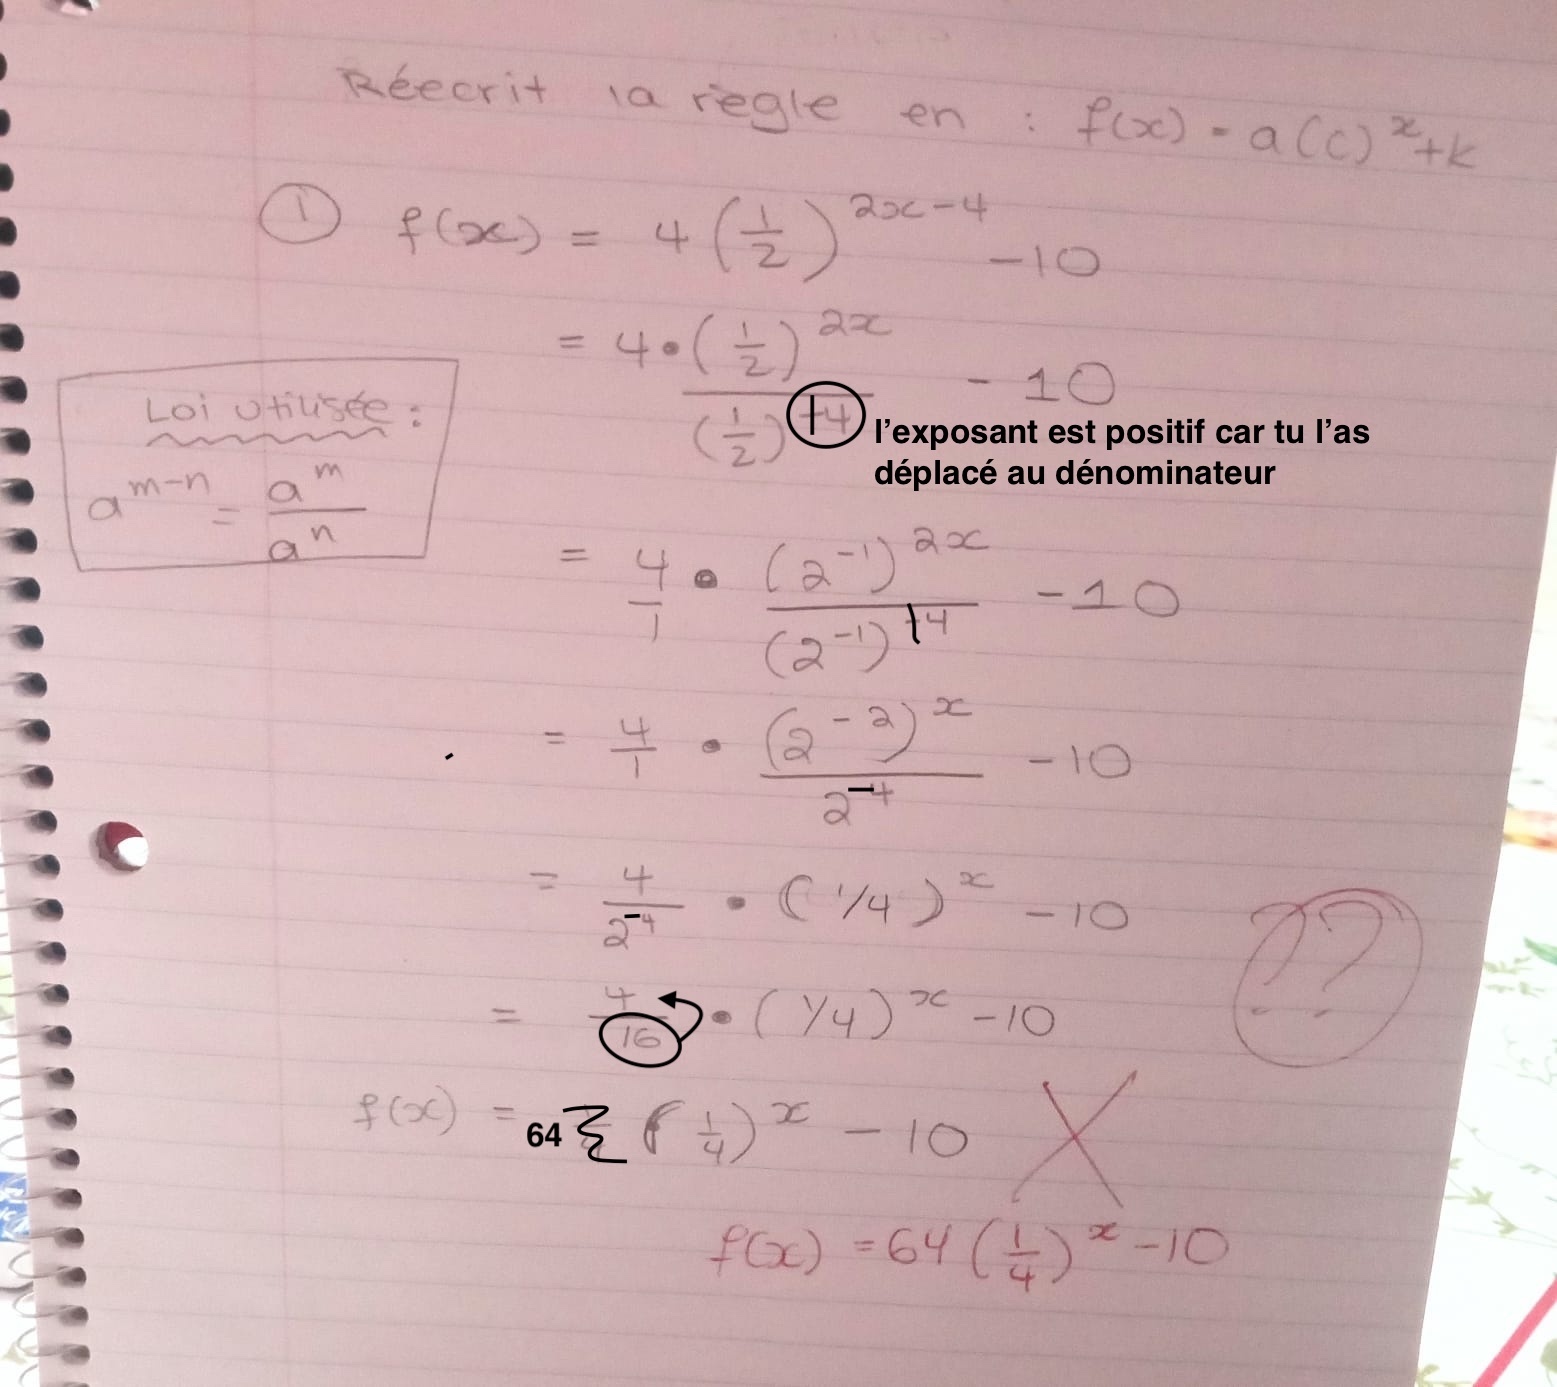 Réecrit la règle en : f(x) = a(c)^x + k
① f(x) = 4(1/2)^(2x-4) - 10
= 4 • (1/2)^(2x) / (1/2)^(+4) - 10
l'exposant est positif car tu l'as
déplacé au dénominateur
Loi utilisée :
a^(m-n) = a^m / a^n
= 4/1 • (2^-1)^(2x) / (2^-1)^(+4) - 10
= 4/1 • (2^-2)^x / 2^-4 - 10
= 4/2^-4 • (1/4)^x - 10
= 4/16 • (1/4)^x - 10
??
f(x) = 64 (1/4)^x - 10
f(x) = 64 (1/4)^x - 10